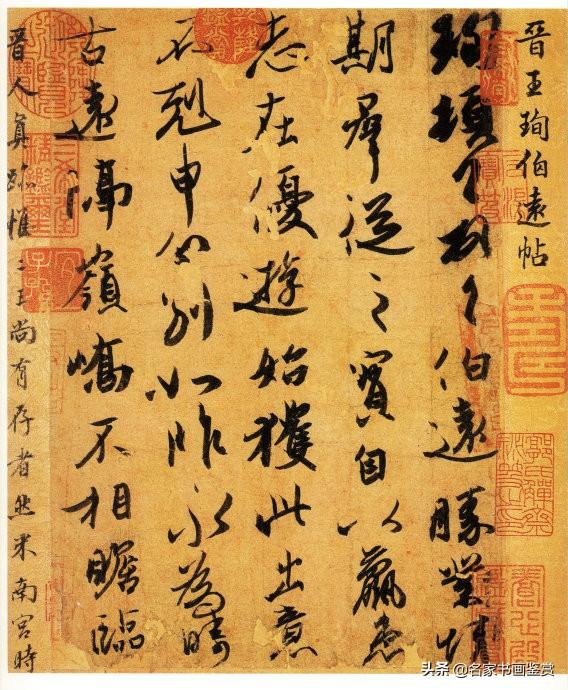 晉王珣伯遠帖
珣頓首頓首伯遠勝業情
期群從之寶自以羸患
志在優遊始獲此出意
不剋申分別如昨永為疇
古遠隔嶺嶠不相瞻臨
晉人真跡惟二王尚有存者然米南宮時
头条 @名家书画鉴赏